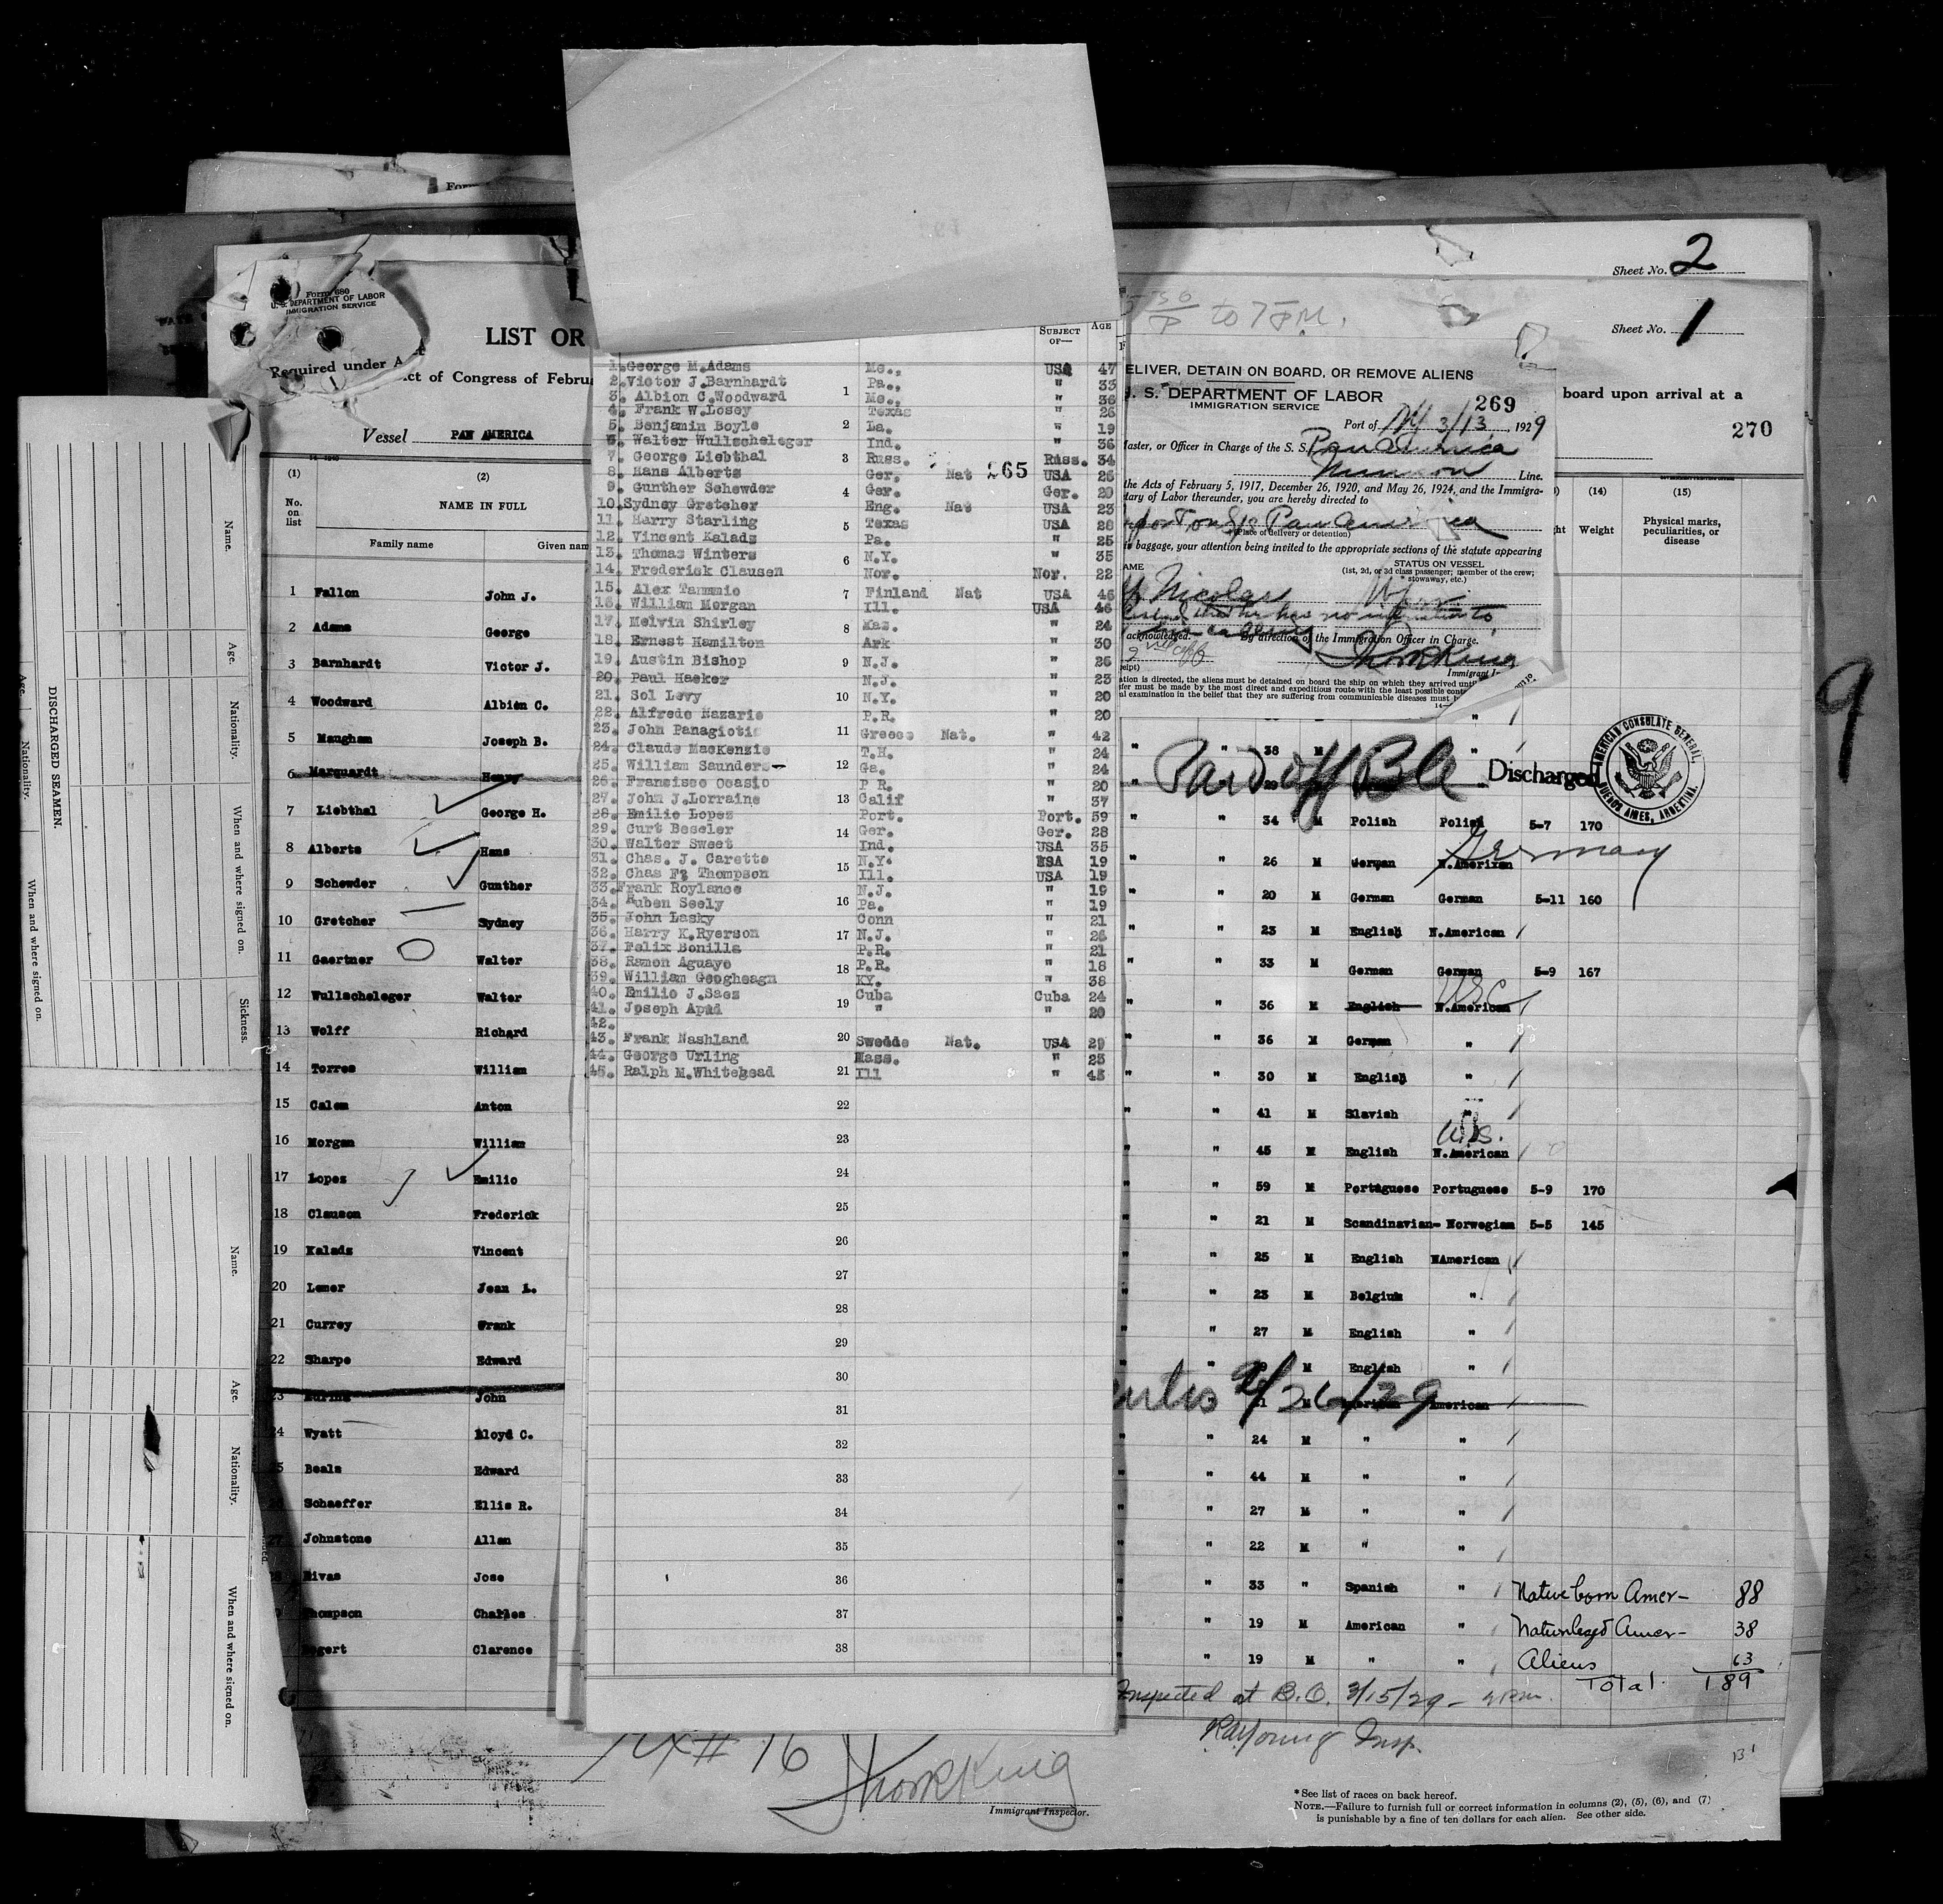 Form
Sheet No. 2
Form 680
U. S. DEPARTMENT OF LABOR
IMMIGRATION SERVICE
LIST OR
Required under A
Act of Congress of Februa
Vessel PAN AMERICA
(1) (2)
No. on list
NAME IN FULL
Family name Given nam
1 Fallon John J.
2 Adams George
3 Barnhardt Victor J.
4 Woodward Albion C.
5 Maugham Joseph B.
6 Marquardt Henry
7 Liebthal George H.
8 Alberts Hans
9 Schewder Gunther
10 Gretcher Sydney
11 Gaertner Walter
12 Wullscheleger Walter
13 Wolff Richard
14 Torres William
15 Calem Anton
16 Morgan William
17 Lopez Emilio
18 Clauson Frederick
19 Kalads Vincent
20 Lemer Jean L.
21 Currey Frank
22 Sharpe Edward
23 John
24 Wyatt Lloyd C.
25 Beals Edward
Schaeffer Ellis R.
27 Johnstone Allan
Rivas Jose
Thompson Charles
Bogert Clarence
DISCHARGED SEAMEN.
Name.
Age.
Nationality.
When and where signed on.
Sickness.
Name.
Age.
Nationality.
When and where signed on.
Age.
Nationality.
When and where signed on.
SUBJECT OF— AGE
1. George M.Adams Me., USA 47
2. Victor J.Barnhardt 1 Pa., " 33
3. Albion C.Woodward Me., " 36
4. Frank W.Losey Texas " 26
5. Benjamin Boyle 2 La. " 19
6. Walter Wullscheleger Ind. " 36
7. George Liebthal 3 Russ. Russ. 34
8. Hans Alberts Ger. Nat 265 USA 26
9. Gunther Schewder 4 Ger. Ger. 20
10.Sydney Gretcher Eng. Nat USA 23
11. Harry Starling 5 Texas USA 28
12. Vincent Kalads Pa. " 25
13. Thomas Winters 6 N.Y. " 35
14. Frederick Clausen Nor. Nor. 22
15. Alex Tammmio 7 Finland Nat USA 46
16. William Morgan Ill. USA 46
17. Melvin Shirley 8 Mas. " 24
18. Ernest Hamilton Ark " 30
19. Austin Bishop 9 N.J. " 26
20. Paul Hacker N.J. " 23
21. Sol Levy 10 N.Y. " 20
22. Alfredo Nazario P.R. " 20
23. John Panagiotis 11 Greece Nat. " 42
24. Claude MacKenzie T.H. " 24
25. William Saunders 12 Ga. " 24
26. Francisco Ocasio P R. " 20
27. John J.Lorraine 13 Calif " 37
28. Emilio Lopez Port. Port. 59
29. Curt Beseler 14 Ger. Ger. 28
30. Walter Sweet Ind. USA 35
31. Chas. J. Carette 15 N.Y. USA 19
32. Chas F Thompson Ill. USA 19
33.Frank Roylance N.J. " 19
34. Ruben Seely 16 Pa. " 19
35. John Lasky Conn " 21
36. Harry K.Ryerson 17 N.J. " 26
37. Felix Bonilla P.R. " 21
38. Ramon Aguayo 18 P.R. " 18
39. William Geogheagn KY. " 38
40. Emilio J.Saez 19 Cuba Cuba 24
41. Joseph Apad " " 20
42.
43. Frank Nashland 20 Swedde Nat. USA 29
44. George Urling Mass. " 23
45. Ralph M.Whitehead 21 Ill " 45
22
23
24
25
26
27
28
29
30
31
32
33
34
35
36
37
38
to 7 P.M.
Sheet No. 1
ELIVER, DETAIN ON BOARD, OR REMOVE ALIENS
U. S. DEPARTMENT OF LABOR
IMMIGRATION SERVICE
269
Port of NY 3/13, 1929
Master, or Officer in Charge of the S. S. Pan America
Munson Line.
the Acts of February 5, 1917, December 26, 1920, and May 26, 1924, and the Immigra-
tary of Labor thereunder, you are hereby directed to
Pan America
(Place of delivery or detention)
is baggage, your attention being invited to the appropriate sections of the statute appearing
NAME STATUS ON VESSEL
(1st, 2d, or 3d class passenger; member of the crew; stowaway, etc.)
Nicolas
acknowledged. By direction of the Immigration Officer in Charge.
Immigrant In
ation is directed, the aliens must be detained on board the ship on which they arrived unti
fer must be made by the most direct and expeditious route with the least possible cont
al examination in the belief that they are suffering from communicable diseases must
board upon arrival at a
270
(14) (15)
ht Weight Physical marks, peculiarities, or disease
" " 38 M "
Paid off BA Discharged
AMERICAN CONSULATE GENERAL, BUENOS AIRES, ARGENTINA.
" " 34 M Polish Polish 5-7 170
Germany
" " 26 M German N.Amerixan
" 20 M German German 5-11 160
" 23 M English N.American
" 33 M German German 5-9 167
USC
" " 36 M English N.American
" " 36 M German "
" " 30 M English "
" " 41 M Slavish "
U.S.
" " 45 M English N.American
" 59 M Portuguese Portuguese 5-9 170
" " 21 M Scandinavian- Norwegian 5-5 145
" " 25 M English NAmerican
" " 23 M Belgium "
" " 27 M English "
M English "
2/26/29 American
" " 24 M " "
" " 44 M " "
" " 27 M " "
" 22 M " "
" 33 " Spanish " Native born Amer- 88
" 19 M American " Naturalized Amer- 38
" 19 M " " Aliens 63
Total 189
Inspected at B.O. 3/15/29
RAYoung Insp.
# 16
Immigrant Inspector.
* See list of races on back hereof.
NOTE.—Failure to furnish full or correct information in columns (2), (5), (6), and (7)
is punishable by a fine of ten dollars for each alien. See other side.
9